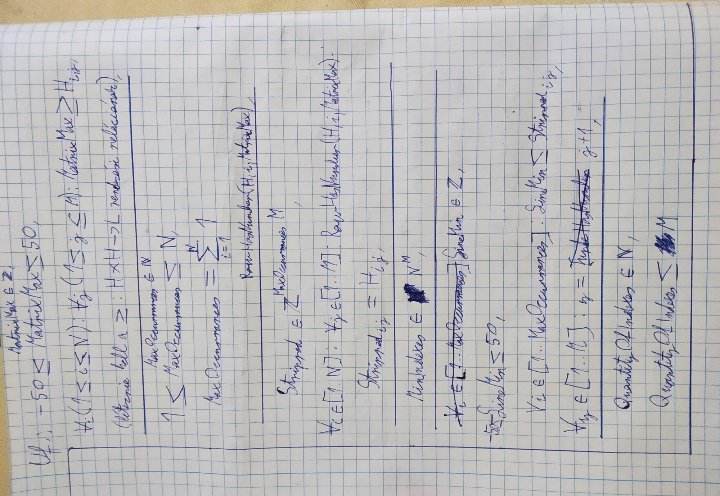 MatrixMax ∈ Z,
Uf.: -50 ≤ MatrixMax ≤ 50,
∀i (1≤i≤N): ∀j (1≤j≤M): MatrixMax ≥ H_{i,j},
(léteznie kell a ≥ : H×H→L rendezési relációnak),
MaxOccurrances ∈ N
1 ≤ MaxOccurrances ≤ N,
MaxOccurrances = ∑_{i=1}^{N} 1
RowHasNumber(H, i, MatrixMax),
Stripped ∈ Z^{MaxOccurrances M}
∀i∈[1..N]: ∀j∈[1..M]: RowHasNumber(H, i, MatrixMax):
Stripped_{ij} = H_{ij},
MinIndexes ∈ N^M,
∀i ∈ [1..MaxOccurrances] LineMin ∈ Z,
-50≤LineMin ≤ 50,
∀i∈[1..MaxOccurrances]: LineMin ≤ Stripped_{ij},
∀j ∈ [1..M]: y = j+1,
QuantityOfIndexes ∈ N,
QuantityOfIndexes ≤ M